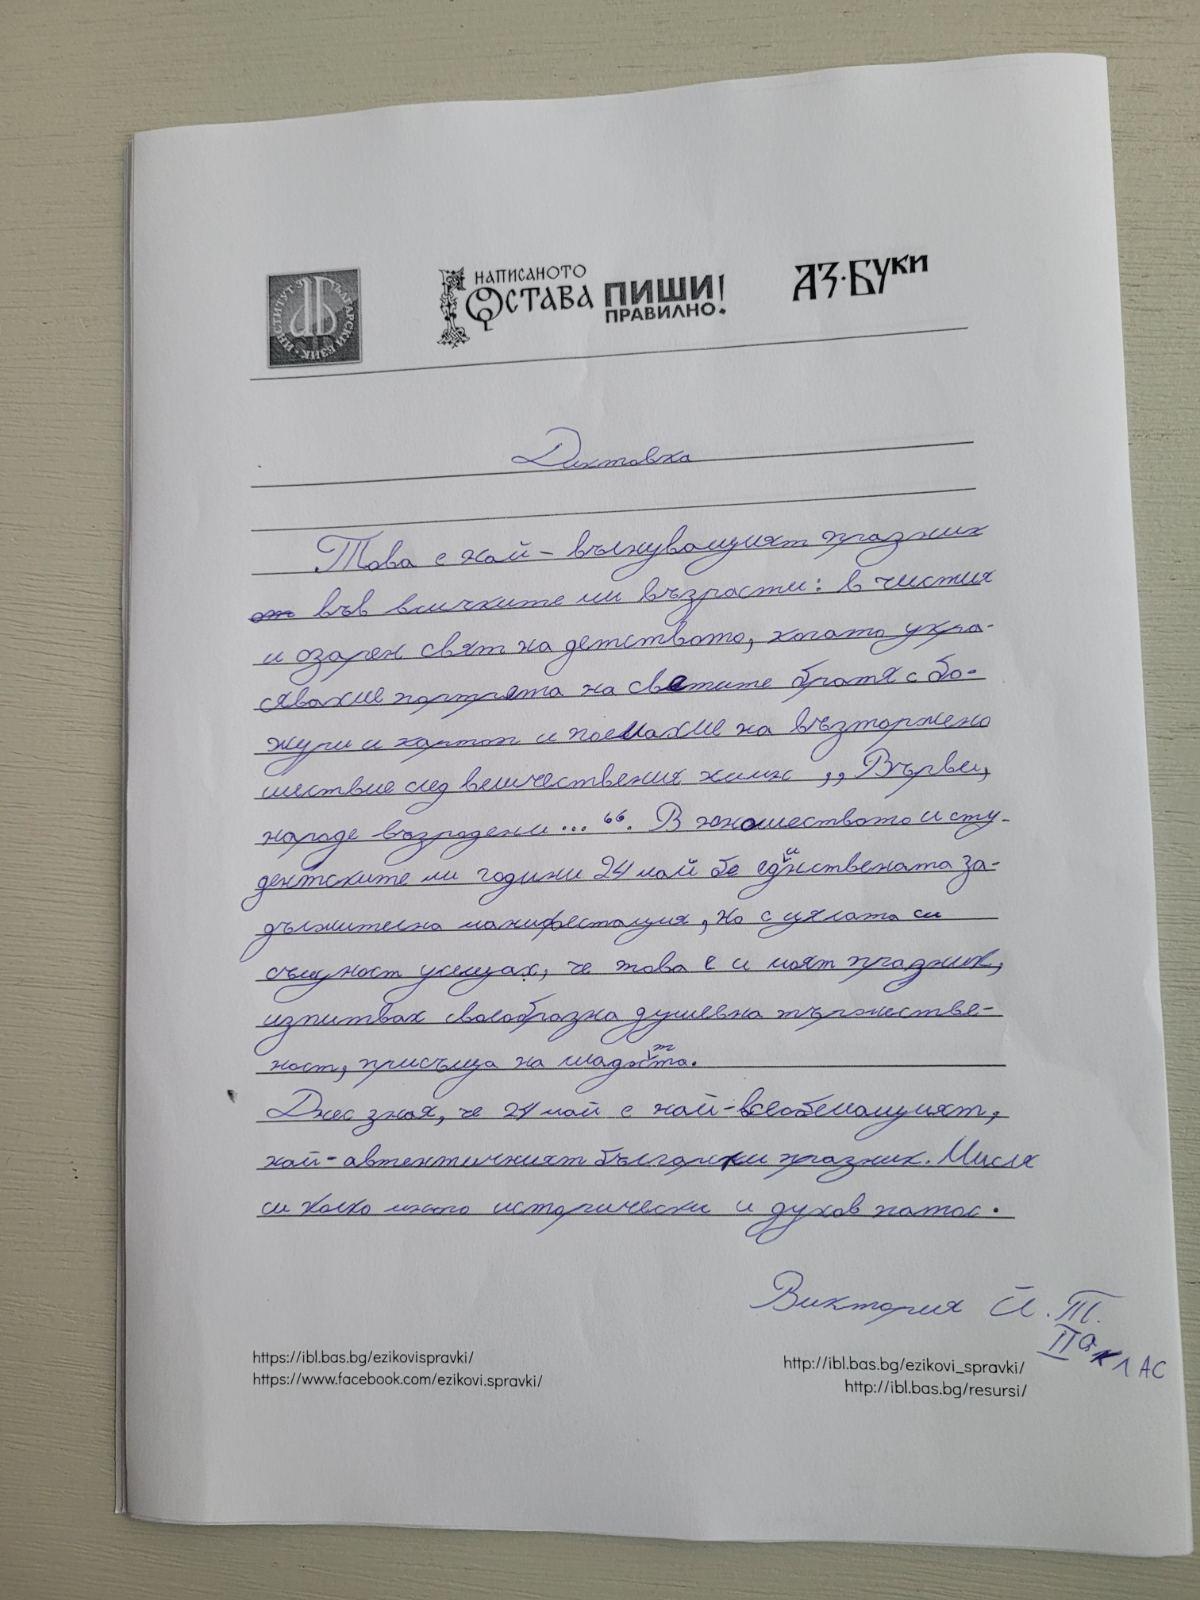 ИНСТИТУТ ЗА БЪЛГАРСКИ ЕЗИК
НАПИСАНОТО
ОСТАВА
ПИШИ
ПРАВИЛНО!
АЗ·БУКИ
Диктовка
Това е най-вълнуващият празник
във всичките ми възрасти: в чистия
и озарен свят на детството, когато укра-
сявахме портрета на светите братя с бо-
жури и хартоп и поемахме на възторжено
шествие след величествения химн „Върви,
народе възродени...“. В юношеството и сту-
дентските ми години 24 май бе единствената за-
дължителна манифестация, но с цялата си
същност усещах, че това е и моят празник,
изпитвах своеобразна душевна тържестве-
ност, присъща на младостта.
Днес зная, че 24 май е най-всеобемащият,
най-автентичният български празник. Мисля
си колко много исторически и духов патос.
Виктория Й. Т.
IIа клас
https://ibl.bas.bg/ezikovispravki/
https://www.facebook.com/ezikovi.spravki/
http://ibl.bas.bg/ezikovi_spravki/
http://ibl.bas.bg/resursi/